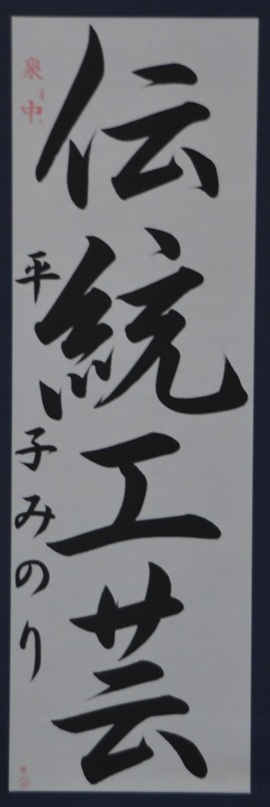 伝統工芸
泉中
平子みのり